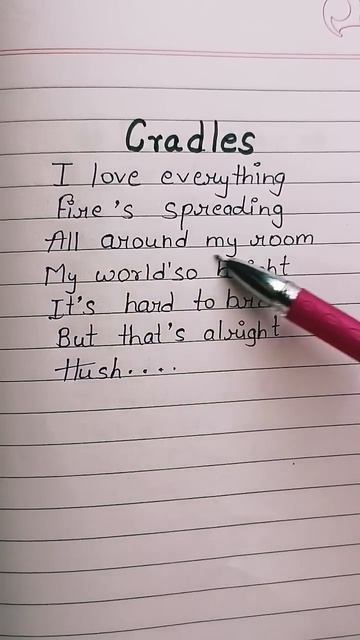 Cradles
I love everything
Fire's spreading
All around my room
My world'so bright
It's hard to
But that's alright
Hush....